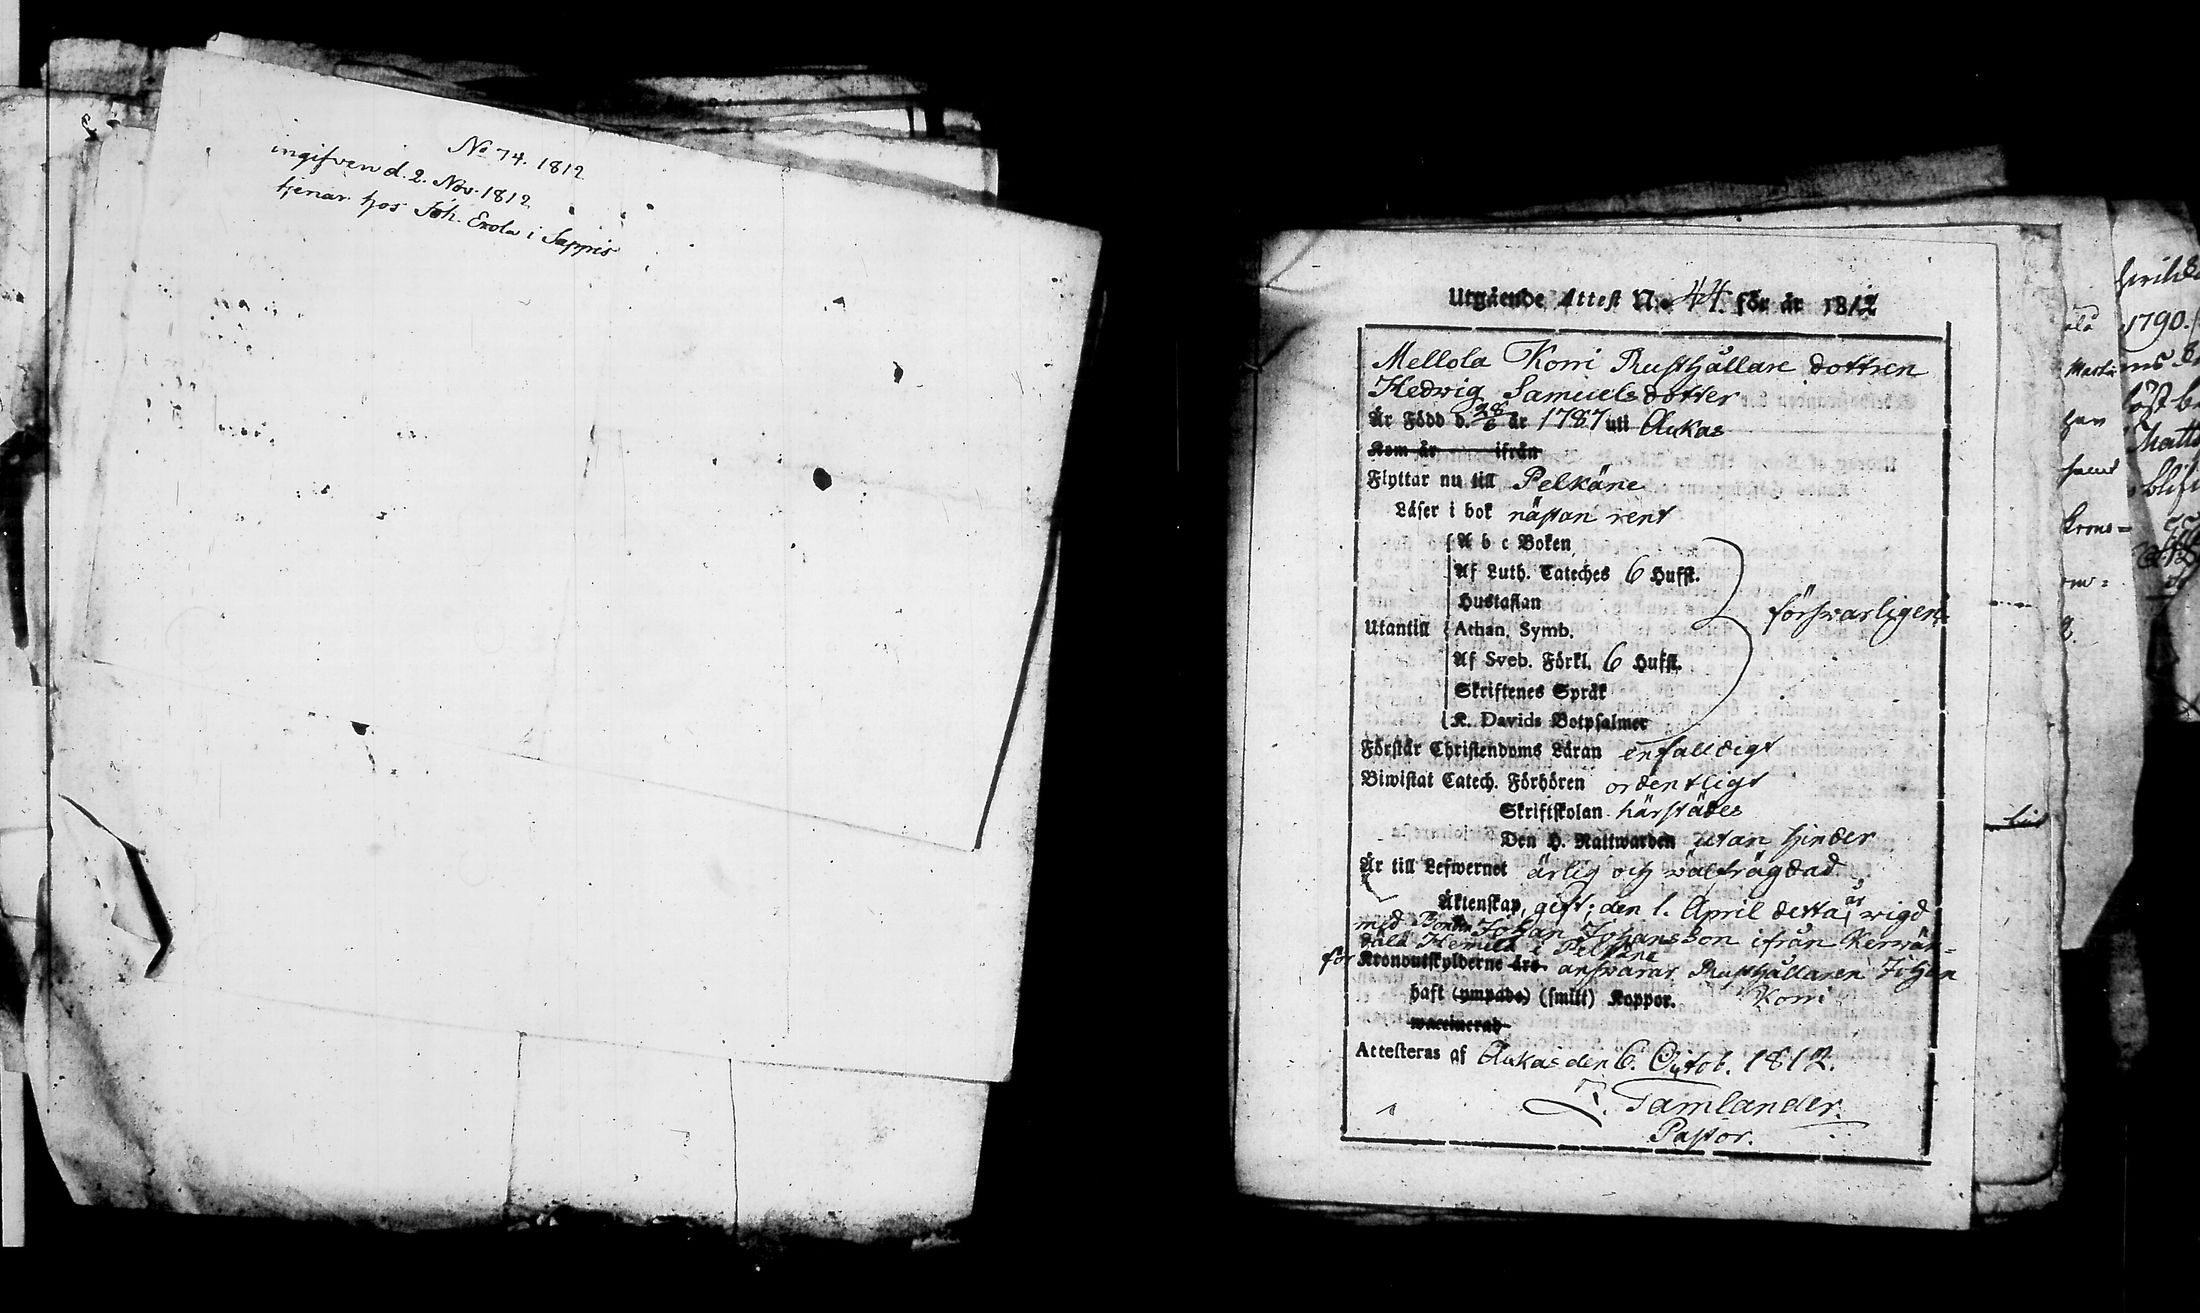 No 74. 1812
ingifven d. 2. Nov. 1812
tjenar hos Joh. Erola i Sappis
Utgående Attest N:o 44. för år 1812
Mellola Korri Rusthållare dottren
Hedwig Samuelsdotter
Är Född d. 28/6 år 1787 uti Aukas
Kom år ifrån
Flyttar nu till Pelkäne
Läser i bok nästan rent
A b c Boken
Af Luth. Cateches 6 Hufst.
Hustaflan
försvarligen
Utantill Athan. Symb.
Af Sveb. Förkl. 6 Hufst.
Skriftenes Språk
K. Davids Botpsalmer
Förstår Christendoms Läran enfalldigt
Biwistat Catech. Förhören ordentligt
Skriftskolan härstädes
Den H. Nattwarden utan hinder
Är till Lefwernet ärlig och wälfrägdad
Äktenskap, gift; den 1. April detta år wigd
med Bonden Johan Johansson ifrån Kerwän=
dälä Hemilä i Pelkäne
för Kronoutskylderne års answarar Rusthållaren Johan
haft (ympade) (smitt) Koppor. Korri
waccinerad
Attesteras af Aukas den 6. Octob. 1812.
T. Tamlander.
Pastor.
1790.
han
krons=